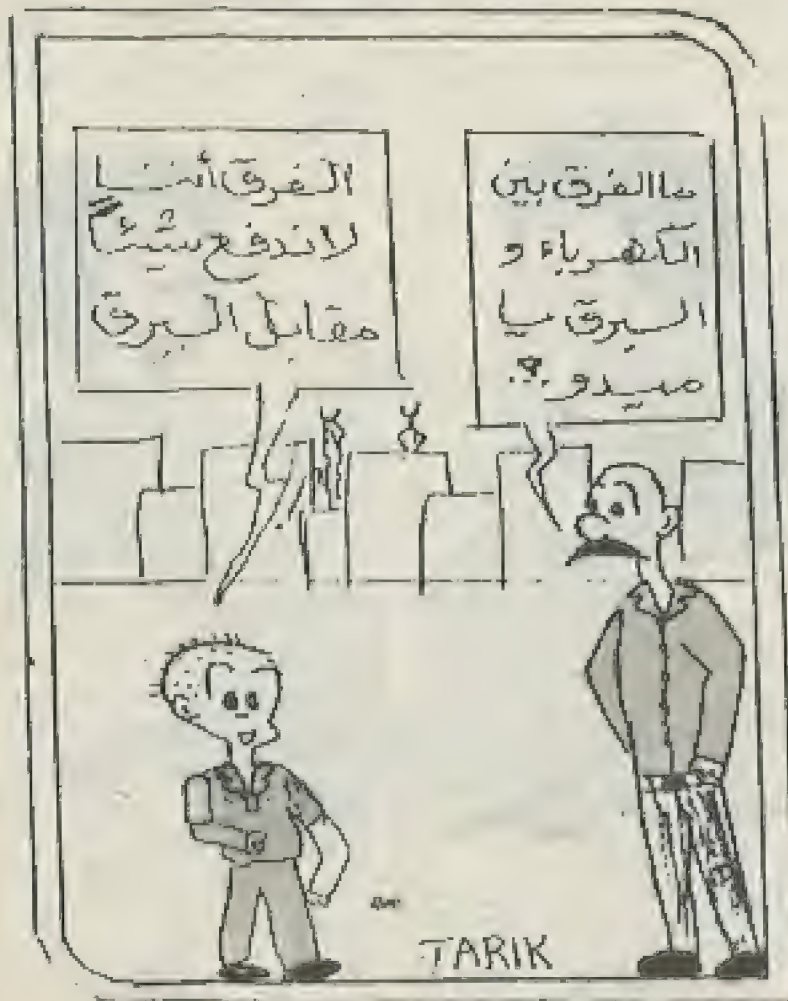 ما الفرق بين
الكهرباء و
البرق يا
ميدو ؟
الفرق أننا
لا ندفع شيئاً
مقابل البرق
TARIK